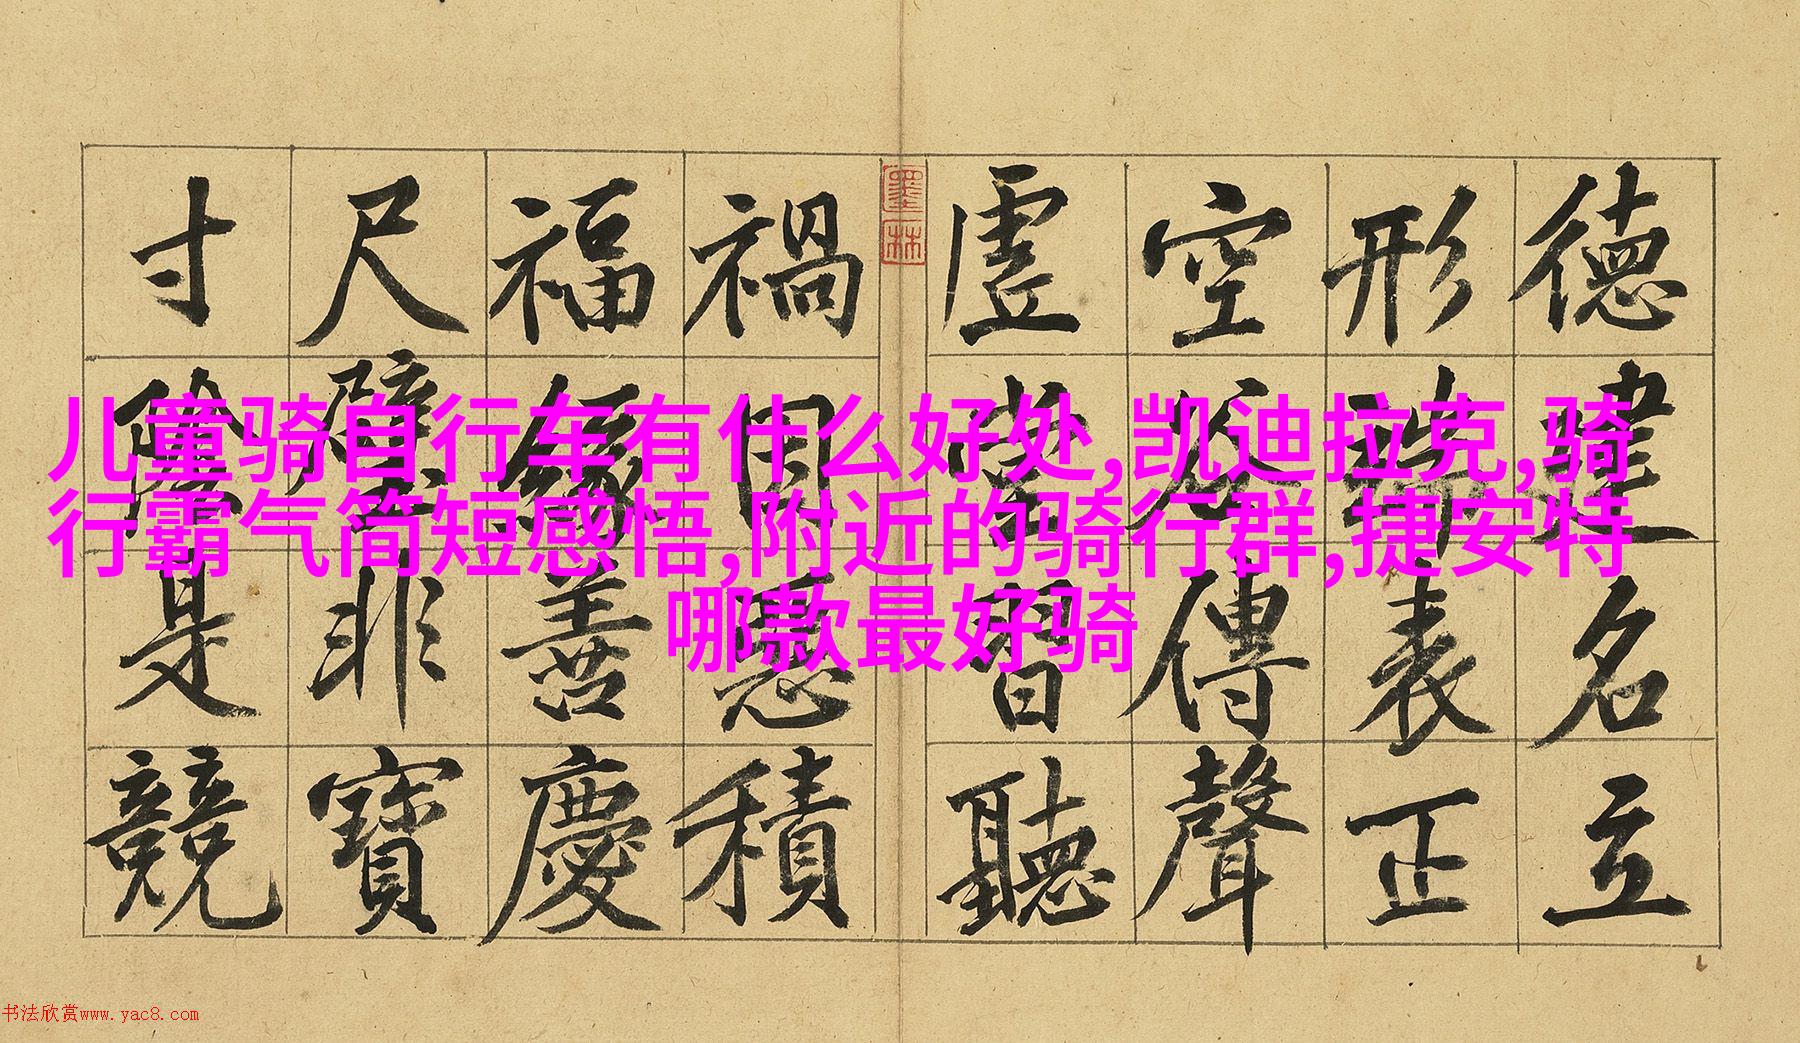 儿童骑自行车有什么好处,凯迪拉克,骑
行霸气简短感悟,附近的骑行群,捷安特
哪款最好骑
德建名立
形端表正
空谷傳聲
虛堂習聽
禍因惡積
福緣善慶
尺璧非寶
寸陰是競
墨林
书法欣赏www.yac8.com